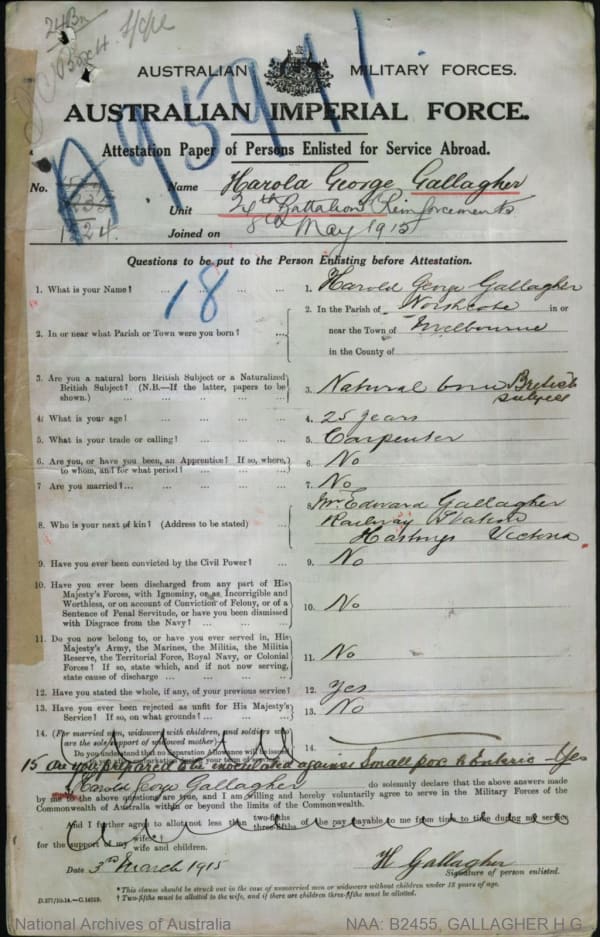 24 Bn
A95911
AUSTRALIAN MILITARY FORCES.
AUSTRALIAN IMPERIAL FORCE.
Attestation Paper of Persons Enlisted for Service Abroad.
No. 1524. Name Harold George Gallagher
Unit 24th Battalion Reinforcements
Joined on May 1915
Questions to be put to the Person Enlisting before Attestation.
18
1. What is your Name? ... ... ... 1. Harold George Gallagher
2. In or near what Parish or Town were you born? ... 2. In the Parish of Northcote in or
near the Town of Melbourne
in the County of
3. Are you a natural born British Subject or a Naturalized
British Subject? (N.B.—If the latter, papers to be
shown.) ... ... ... 3. Natural born British
subject
4. What is your age? ... ... ... 4. 25 years
5. What is your trade or calling? ... ... ... 5. Carpenter
6. Are you, or have you been, an Apprentice? If so, where,
to whom, and for what period? ... ... ... 6. No
7 Are you married? ... ... ... ... 7. No
8. Who is your next of kin? (Address to be stated) ... 8. Mr Edward Gallagher
Railway Station
Hastings Victoria
9. Have you ever been convicted by the Civil Power? ... 9. No
10. Have you ever been discharged from any part of His
Majesty's Forces, with Ignominy, or as Incorrigible and
Worthless, or on account of Conviction of Felony, or of a
Sentence of Penal Servitude, or have you been dismissed
with Disgrace from the Navy? ... ... ... 10. No
11. Do you now belong to, or have you ever served in, His
Majesty's Army, the Marines, the Militia, the Militia
Reserve, the Territorial Force, Royal Navy, or Colonial
Forces? If so, state which, and if not now serving,
state cause of discharge ... ... ... 11. No
12. Have you stated the whole, if any, of your previous service? 12. yes
13. Have you ever been rejected as unfit for His Majesty's
Service? If so, on what grounds? ... ... 13. No
14. (For married men, widowers with children, and soldiers who
are the sole support of widowed mother)
Do you understand that no Separation Allowance will be issued 14.
15 Are you prepared to be inoculated against Small pox & Enteric - Yes
I Harold George Gallagher do solemnly declare that the above answers made
by me to the above questions are true, and I am willing and hereby voluntarily agree to serve in the Military Forces of the
Commonwealth of Australia within or beyond the limits of the Commonwealth.
And I further agree to allot not less than two-fifths three-fifths of the pay payable to me from time to time during my service
for the support of my wife† wife and children.
Date 3rd March 1915 H Gallagher
Signature of person enlisted.
* This clause should be struck out in the case of unmarried men or widowers without children under 18 years of age.
D.277/10.14.—C.14219. † Two-fifths must be allotted to the wife, and if there are children three-fifths must be allotted.
National Archives of Australia NAA: B2455, GALLAGHER H G